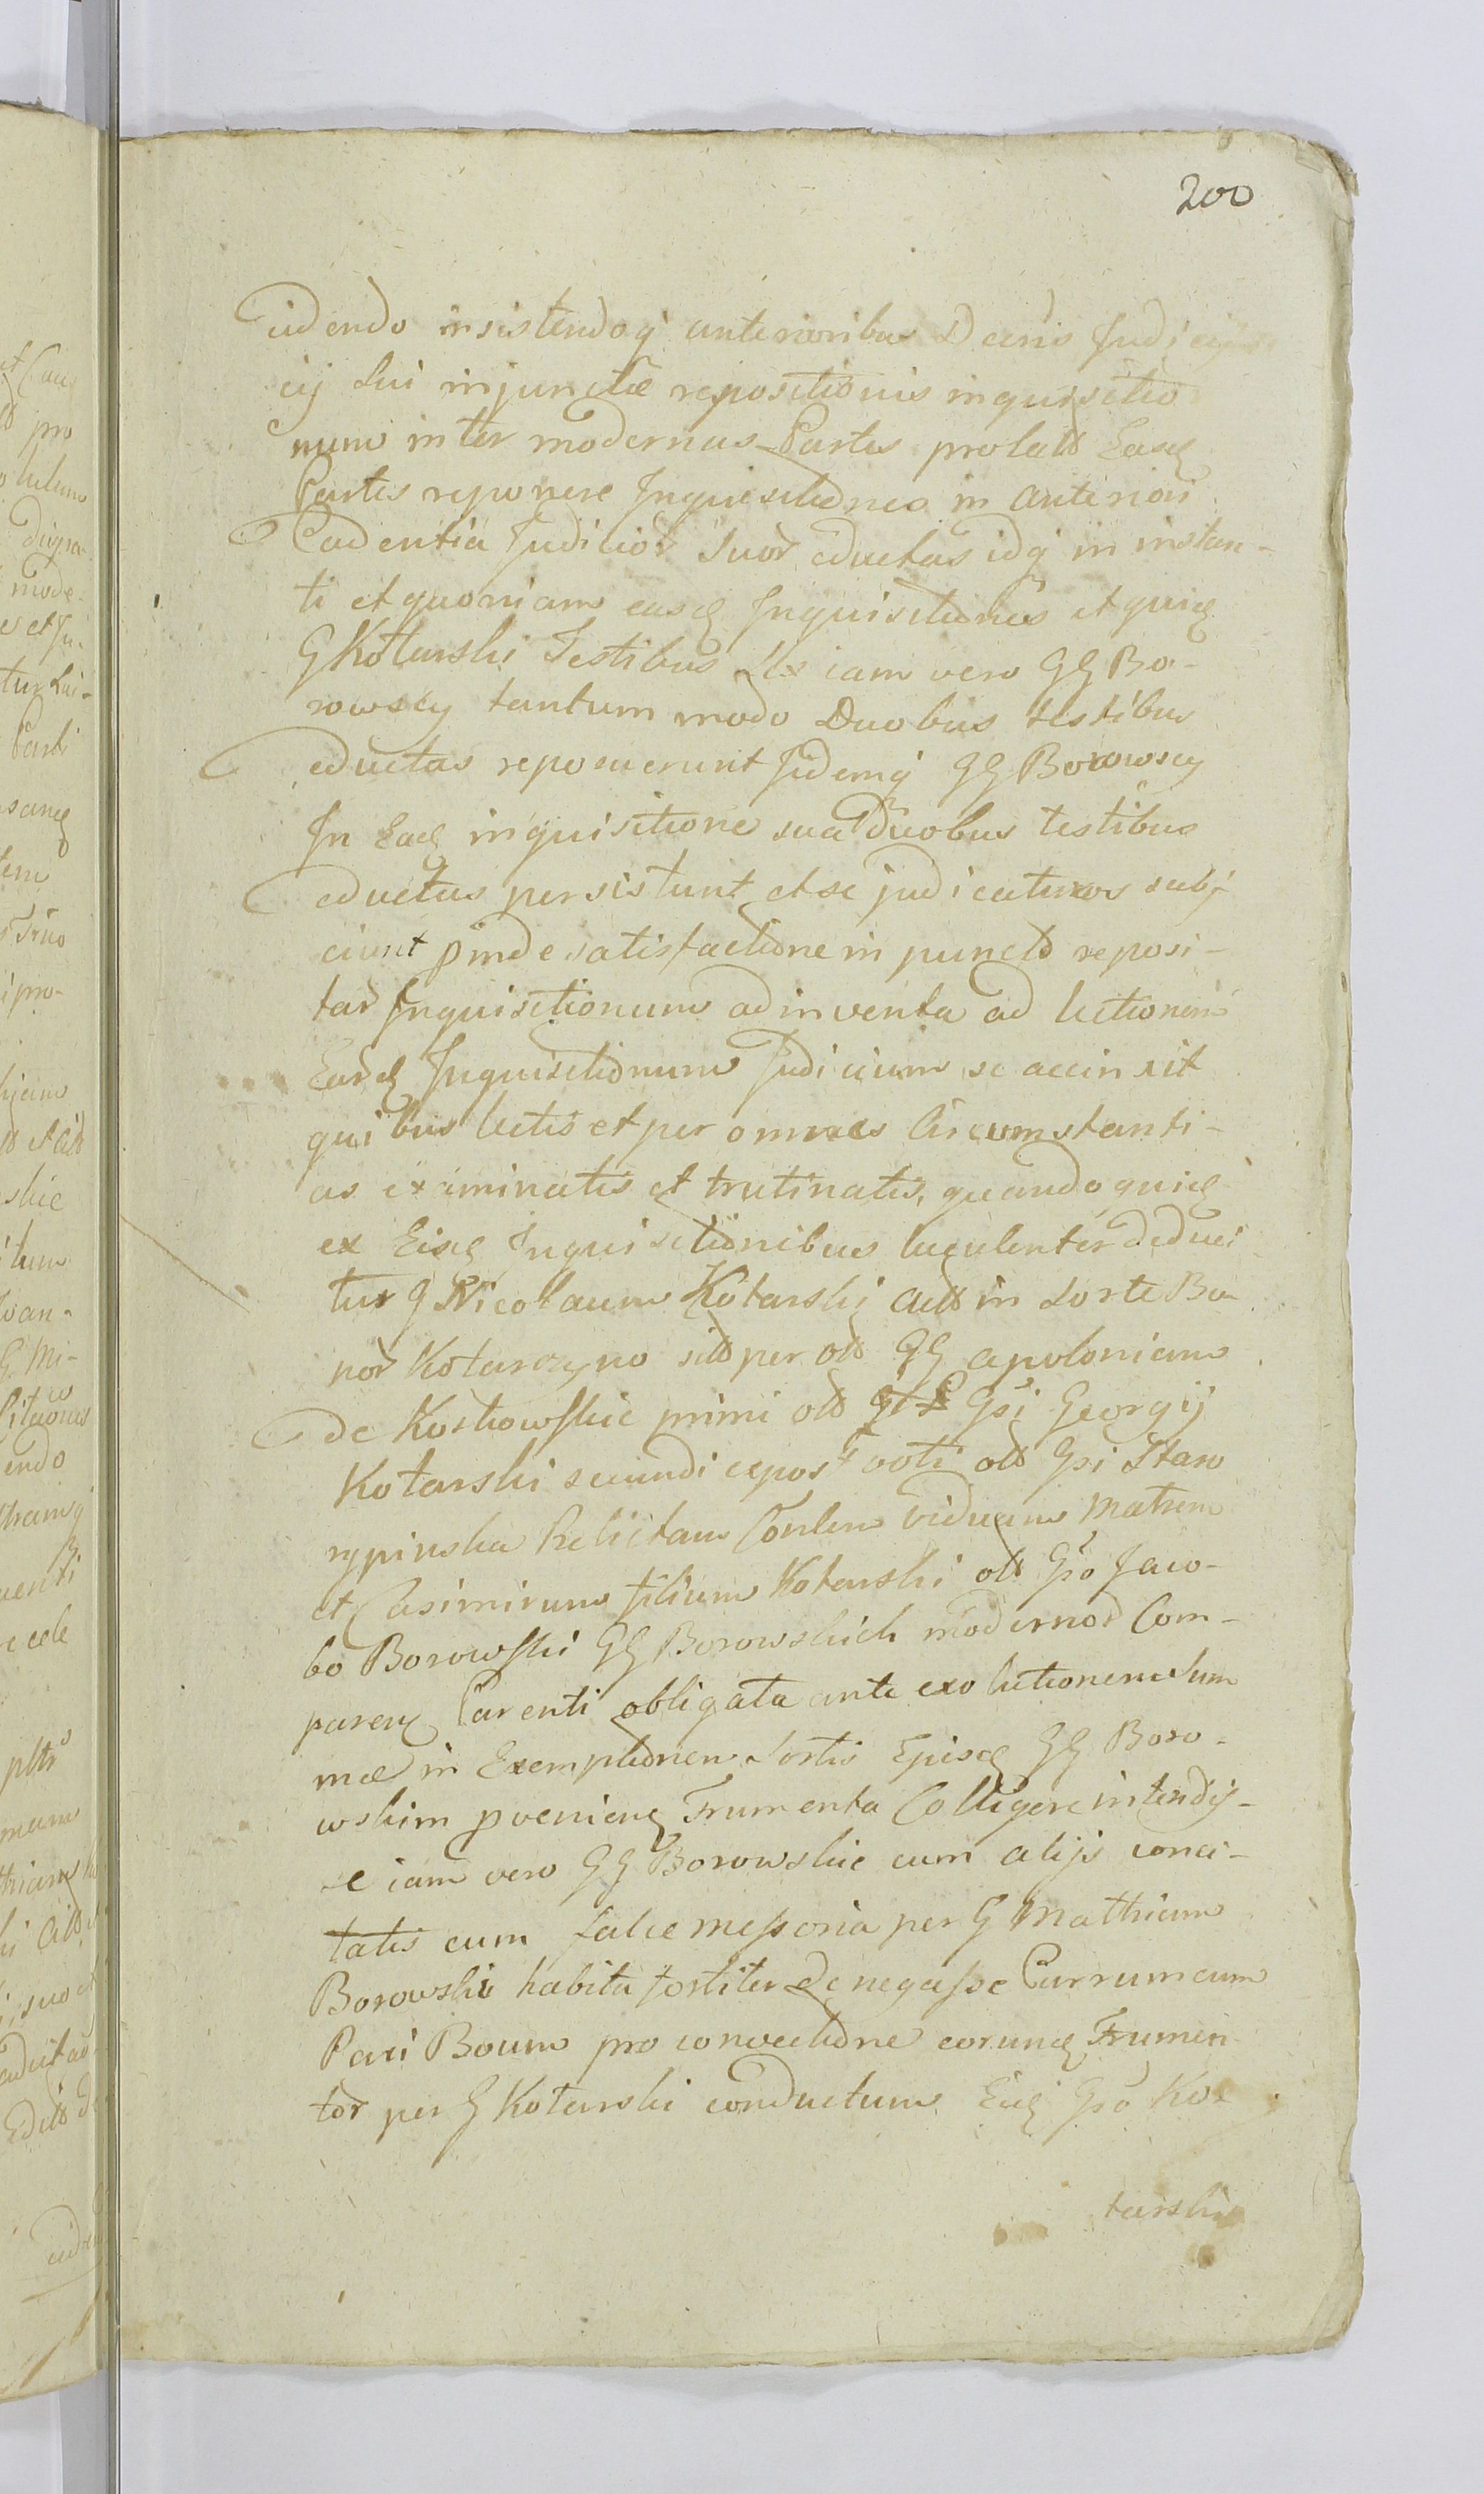 200
cidendo insistendoq anterioribus Decris Judicij
cij Sui injunctæ repositionis inquisitio
num inter modernas Partes prolatō Easq
Partes reponere Inquisitiones in anteriori
Cadentia Judicior Suor eductas idq in instan-
ti et quoniam easq Inquisitiones et quidq
G Kotarski Testibus iam vero GG Bo-
rowscy tantum modo Duobus testibus
eductas reposuerunt Jidemq GG Borowscy
In Eaq inquisitione sua duobus testibus
eductas persistunt et se judicaturos subj-
ciunt pinde satisfactione in puncto reposi-
tar Inquisitionum adinventa ad lectionem
Earq Inquisitionum Judicium se accinxit
quibus lectis et per omnes Circumstanti-
as examinatis et trutinatis, quando quidq
ex Eisq Inquisitionibus luculenter deduci
tur G Nicolaum Kotarski actō in Sorte Bo-
nor Kotarczyno sitō per olō GG Apoloniam
de Kostrowskie primi olō Gsi Georgij
Kotarski secundi epost voti olō Gsi Staro
rypinska Relictam Consem viduam Matrem
et Casimirum filium Kotarski olō Gso Jaco-
bo Borowski GG Borowskich modernor Com-
parenq Parenti obligata ante exolutionem Sum
mæ in Exemptionem Sortis Episq GG Boro-
wskim pvenienq Frumenta Colligere intendis-
se iam vero GG Borowskie cum alijs conci-
tatis cum falce messoria per G Mathiam
Borowski habita fortiter denegasse Currum cum
Pari Boum pro convectione eorumq Frumen-
tor per G Kotarski conductum Eidq Gso Ko-
tarski